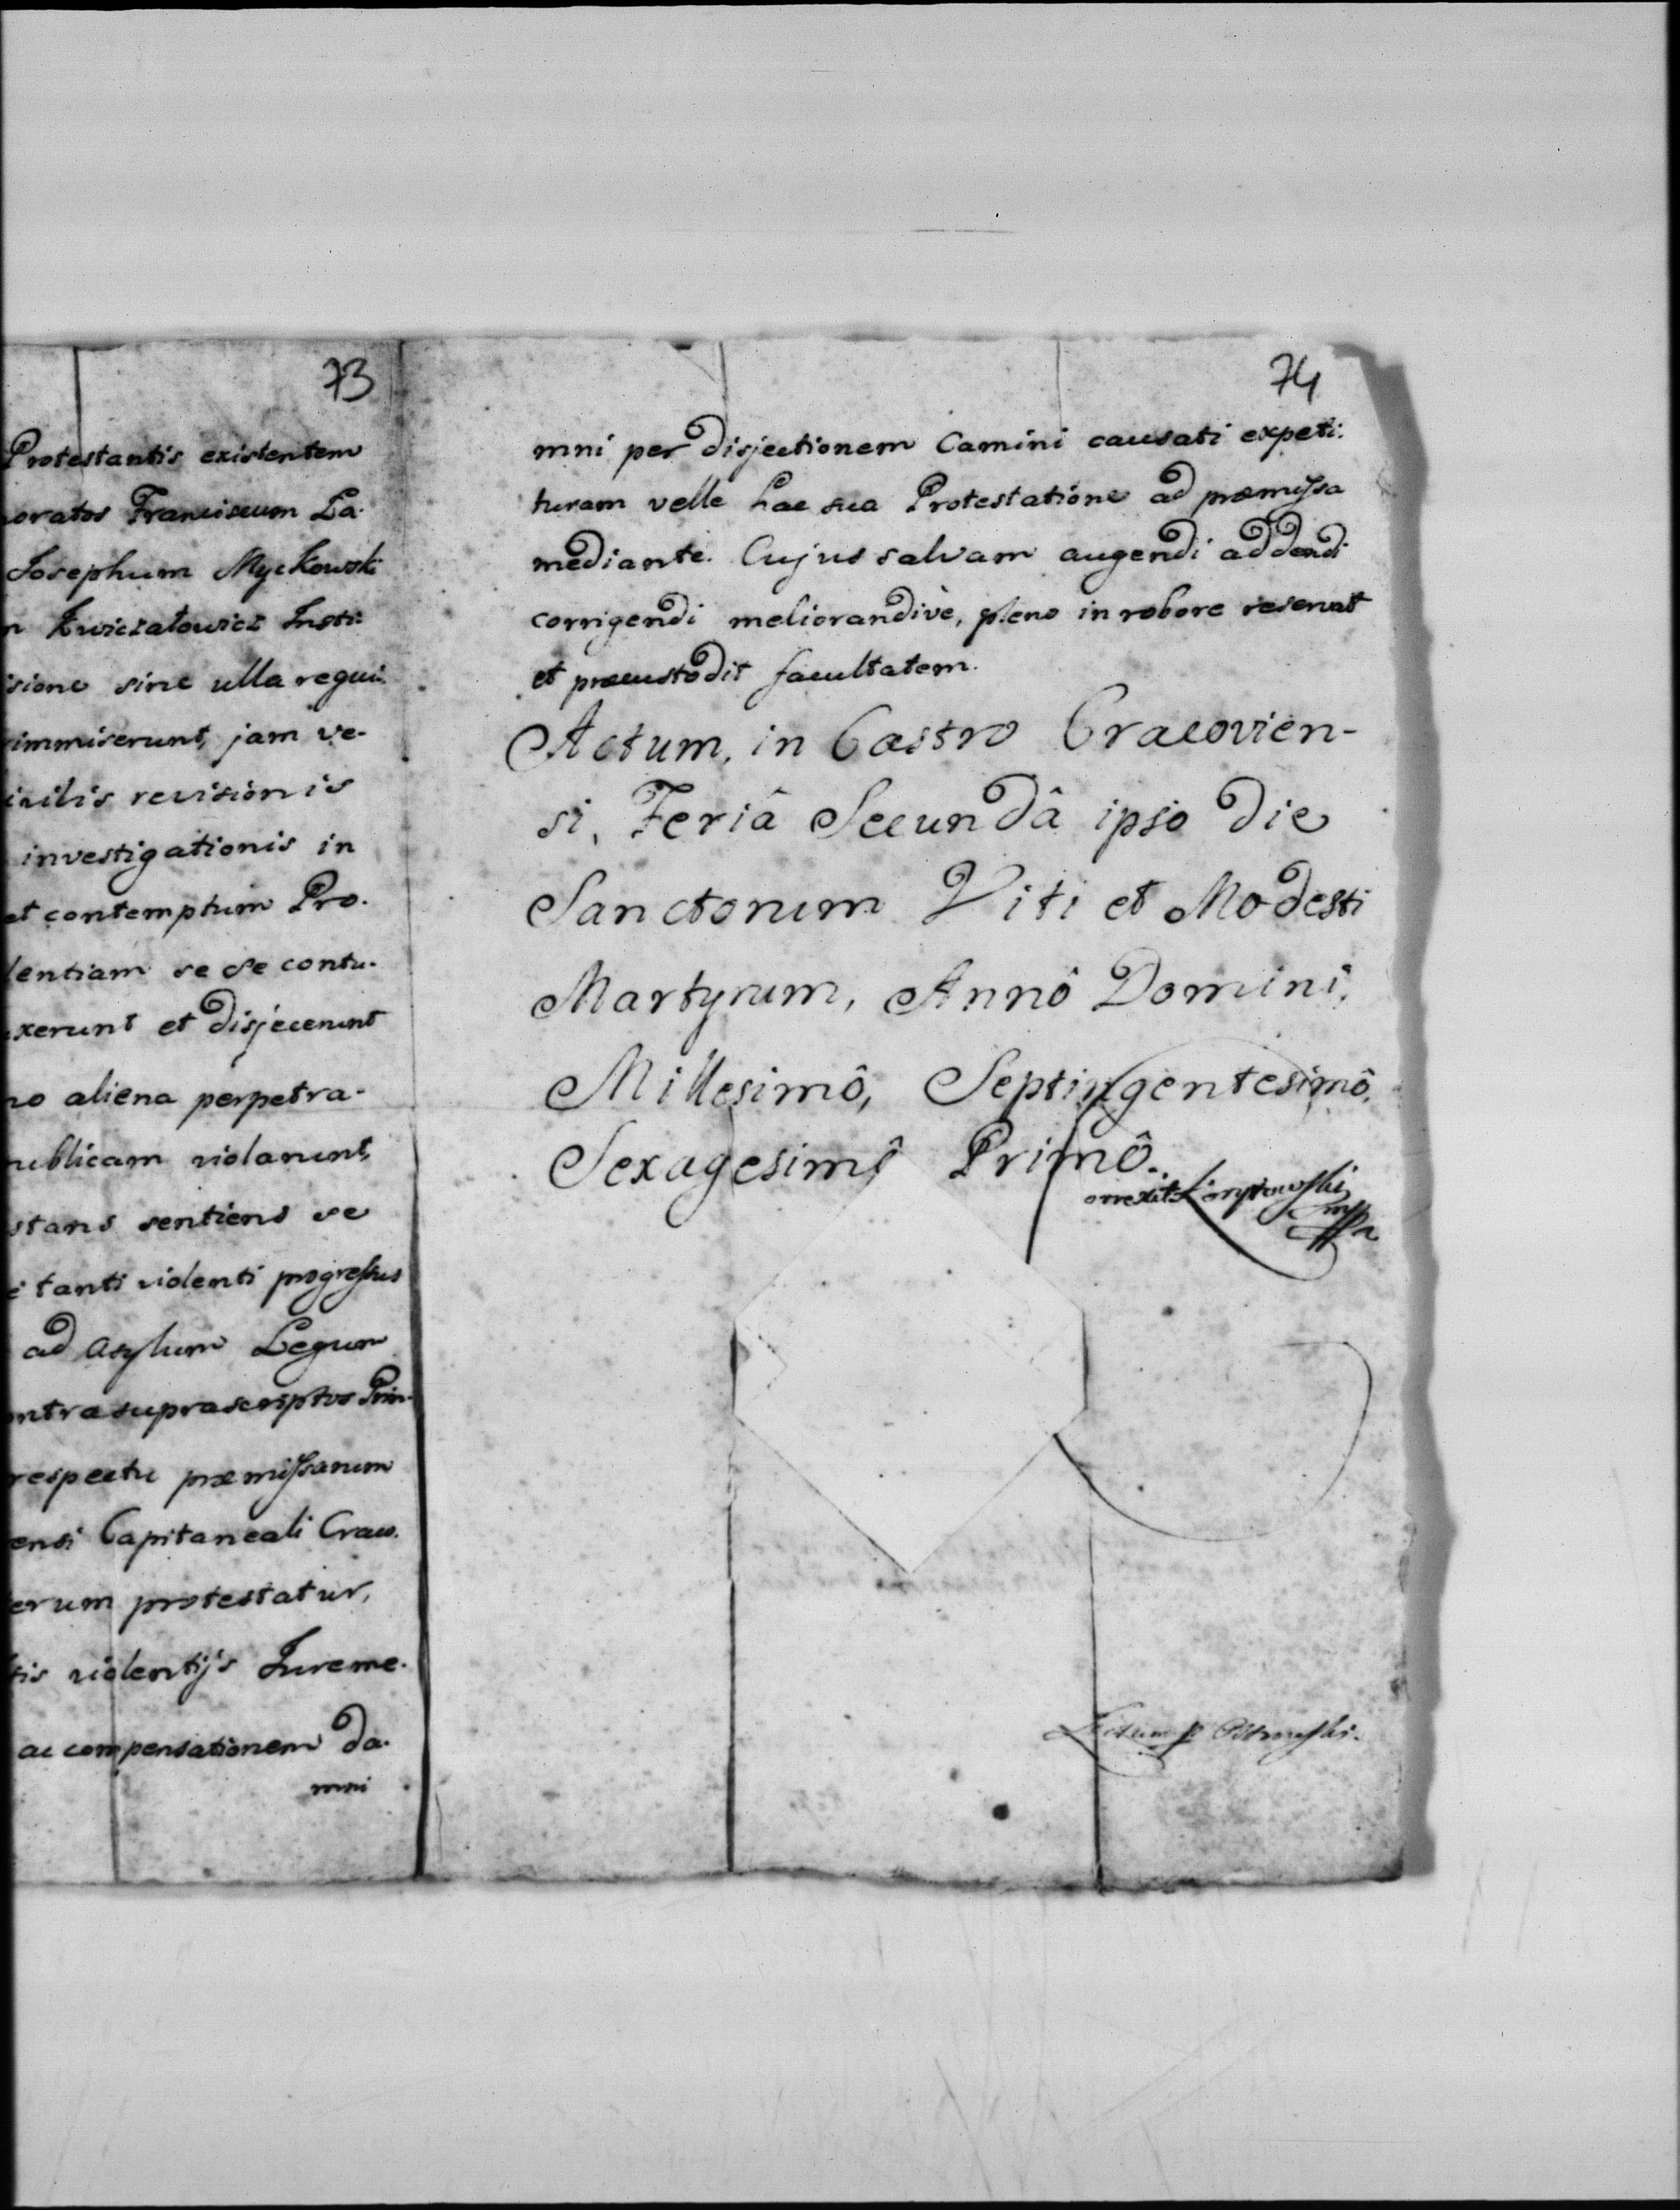 73
Protestantis existentem
noratos Franciscum La.
Josephum Myckowski
n Kwiczałowicz Insti:
isione sine ulla requi.
immiserunt, jam ve-
inilis revisionis
investigationis in
et contemptum Pro.
lentiam se se contu.
xerunt et disjecerunt
no aliena perpetra-
ublicam violarunt,
stans sentiens se
e tanti violenti progressus
ad Asylum Legum
ntra suprascriptos Prin-
respectu præmissarum
ensi Capitaneali Crac.
erum protestatur,
tis violentijs Jureme.
ac compensationem da.
mni
74
mni per disjectionem Camini causati expeti:
turam velle hac sua Protestatione ad præmissa
mediante. Cujus salvam augendi addendi
corrigendi meliorandivè, pleno in robore reservat
et præcustodit facultatem.
Actum, in Castro Cracovien-
si, Feriâ Secundâ ipso die
Sanctorum Viti et Modesti
Martyrum, Annô Domini,
Millesimô, Septingentesimô,
Sexagesimô Primô.
orrexit mppa
Lectum p